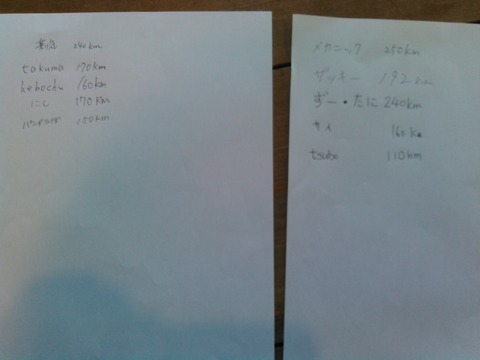 240km
takuma 170km
hebochu 160km
にし 170km
150km
メカニック 250km
ザッキー 192km
ずー・たに 240km
サイ 160km
tsubo 110km